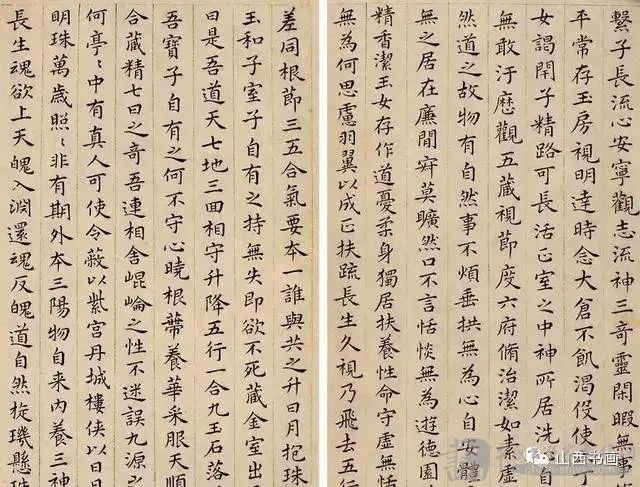 繫子長流心安寧觀志流神三奇靈閑暇無事
平常存玉房視明達時念大倉不飢渴役使六丁
女謁閇子精路可長活正室之中神所居洗自
無敢汙歷觀五藏視節度六府脩治潔如素虛
然道之故物有自然事不煩垂拱無為心自安體
無之居在廉閒寂莫曠然口不言恬惔無為遊德園
精香潔玉女存作道憂柔身獨居扶養性命守虛無恬
無為何思慮羽翼以成正扶疏長生久視乃飛去五行
差同根節三五合氣要本一誰與共之升日月抱珠
玉和子室子自有之持無失即欲不死藏金室出
日是吾道天七地三回相守升降五行一合九玉石落
吾寶子自有之何不守心曉根蔕養華采服天順
合藏精七日之奇吾連相舍崐崘之性不迷誤九源之
何亭亭中有真人可使令蔽以紫宮丹城樓俠以日月
明珠萬歲照照非有期外本三陽物自来內養三神
長生魂欲上天魄入淵還魂反魄道自然㳬璣懸珠
山西书画